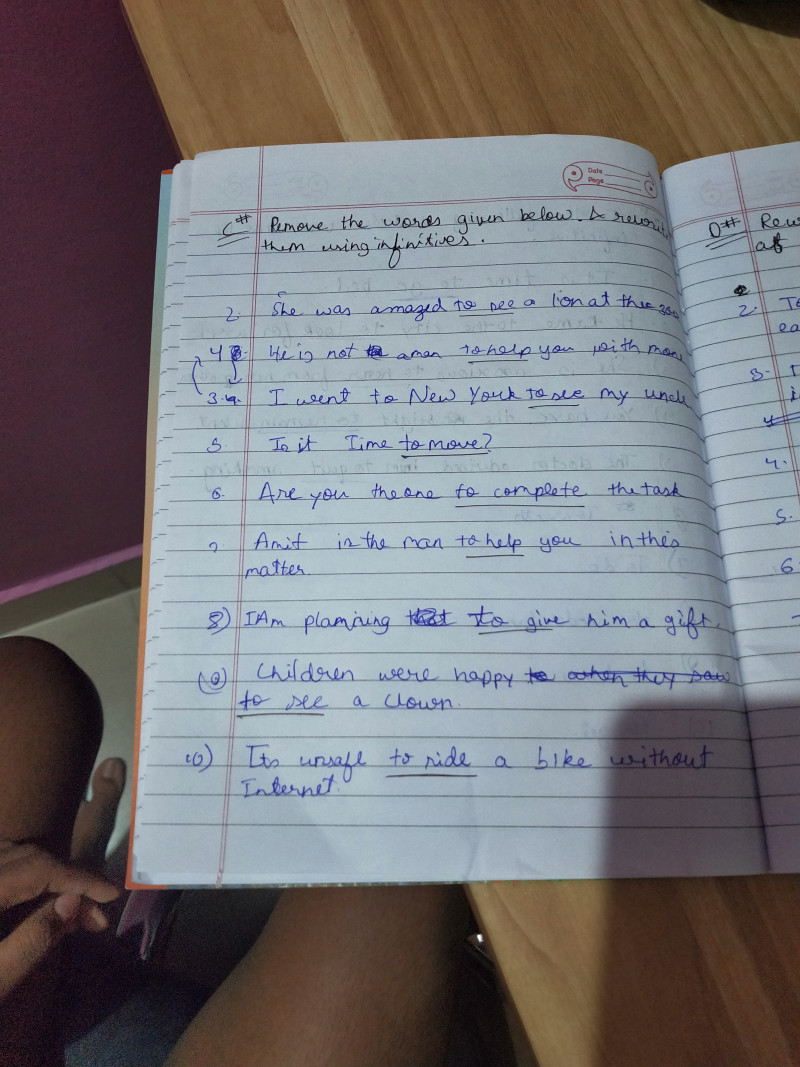 Date
Page
C# Remove the words given below. & rewrite
them using infinitives.
2. She was amazed to see a lion at the zoo
4 He is not a man to help you with money
3. I went to New York to see my uncle
5. Is it Time to move?
6. Are you the one to complete the task
7 Amit is the man to help you in this
matter
8) I Am planning to give him a gift.
(9) Children were happy to when they saw
to see a clown.
10) Its unsafe to ride a bike without
Internet.
D# Rew
af
2. To
ea
3. I
i
4
4.
5.
6